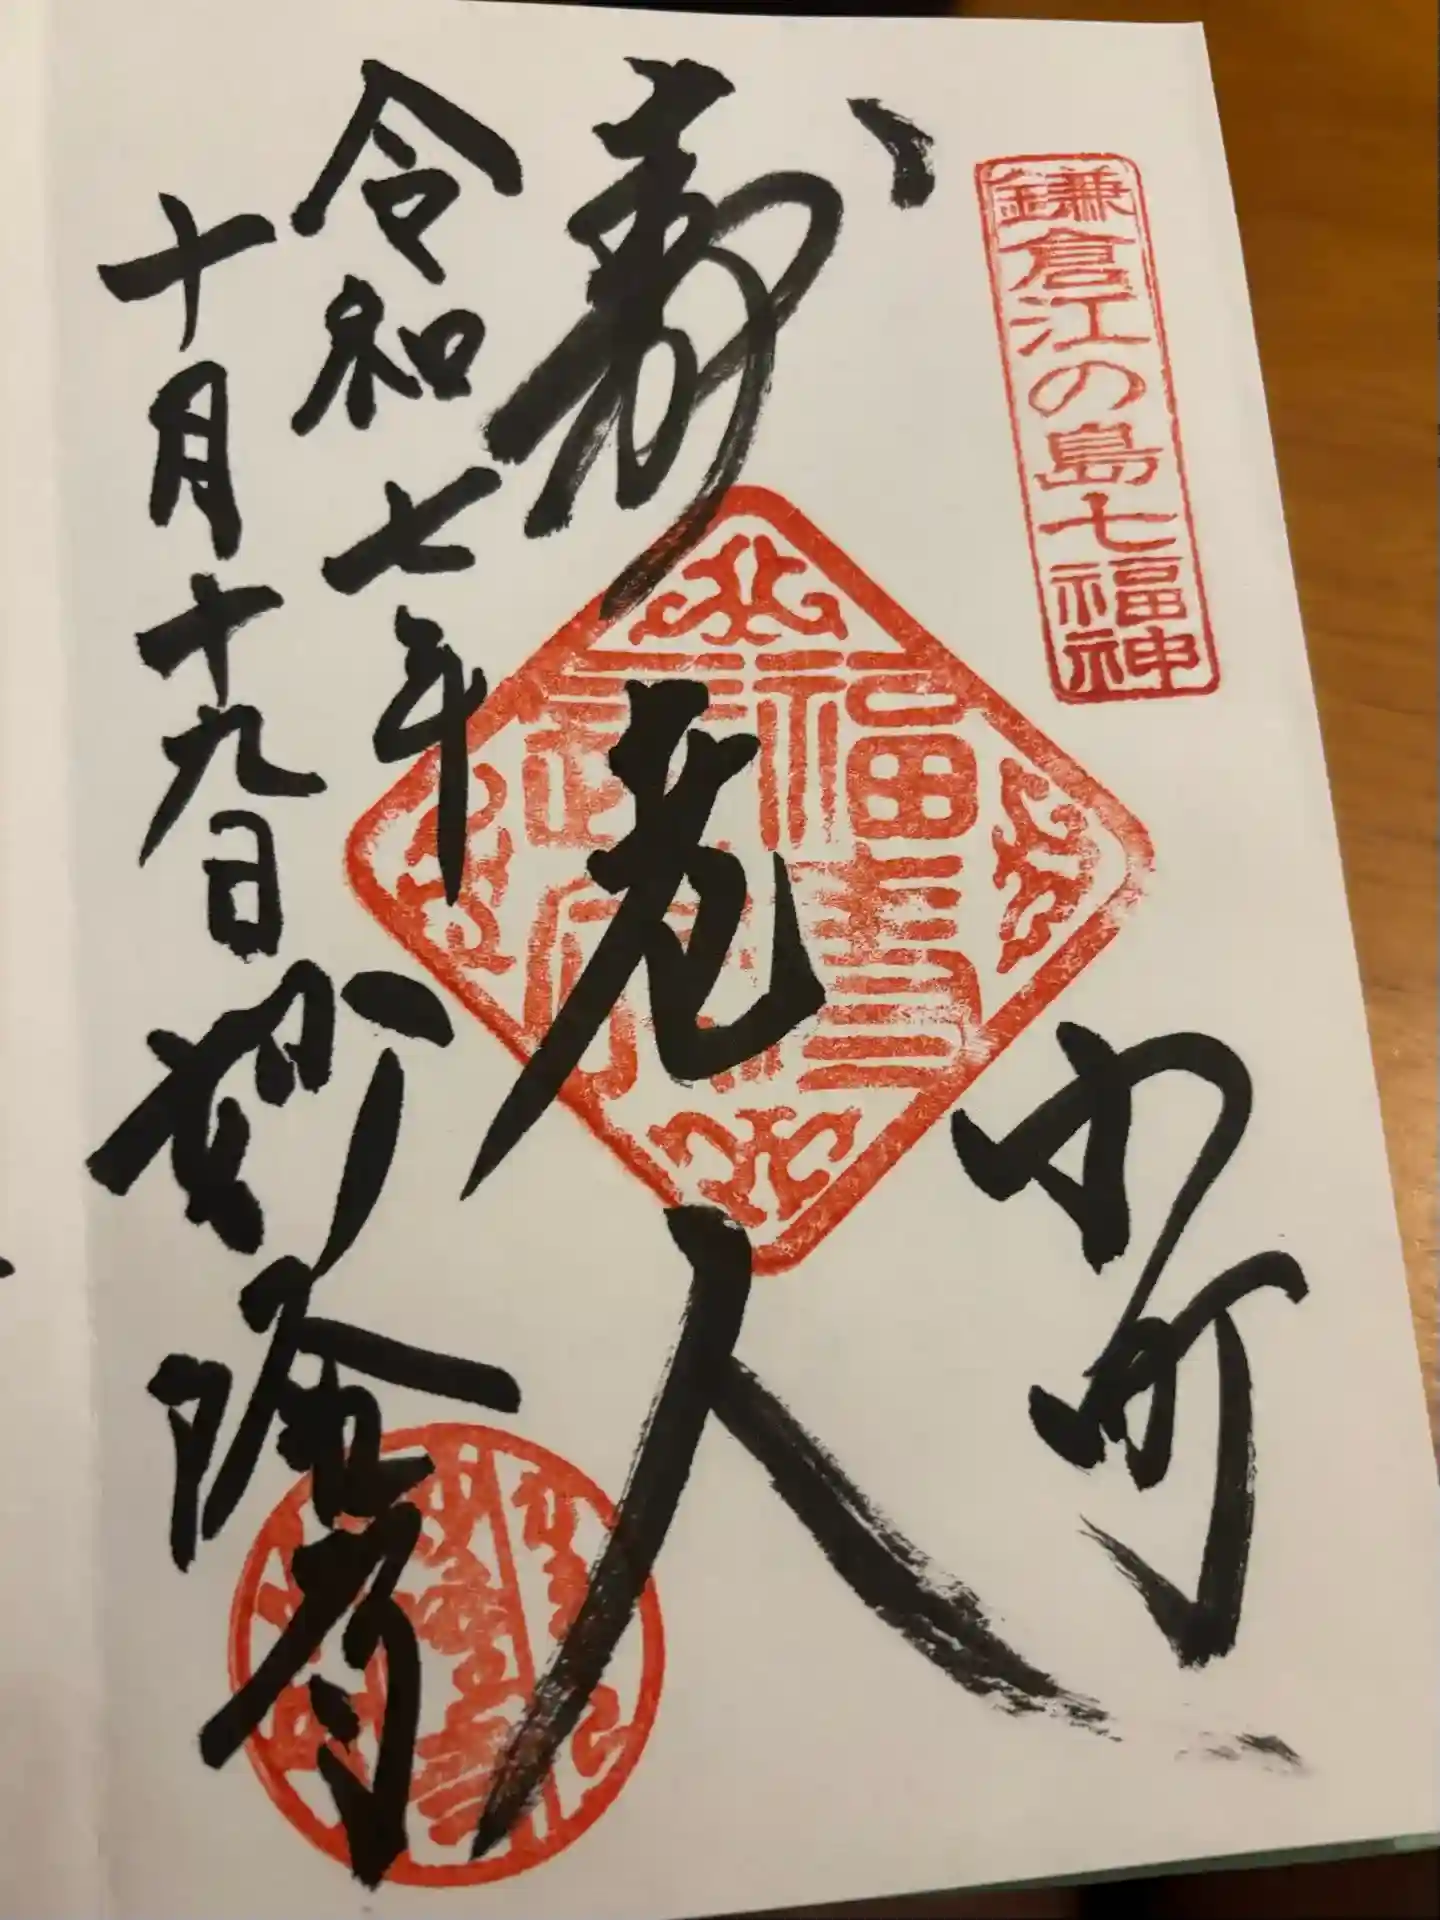 鎌倉江の島七福神
小町
寿老人
令和七年
十月十九日 妙隆寺